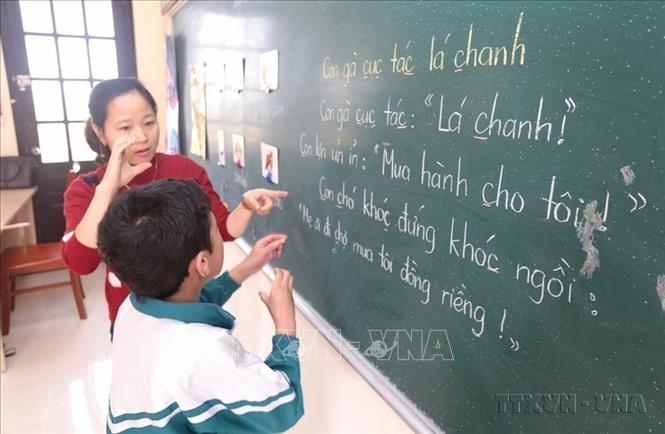 Con gà cục tác lá chanh
Con gà cục tác: "Lá chanh!"
Con lợn ủn ỉn: "Mua hành cho tôi!"
Con chó khóc đứng khóc ngồi:
"Mẹ ơi đi chợ mua tôi đồng riềng!"
TTXVN - VNA
TTXVN-VNA